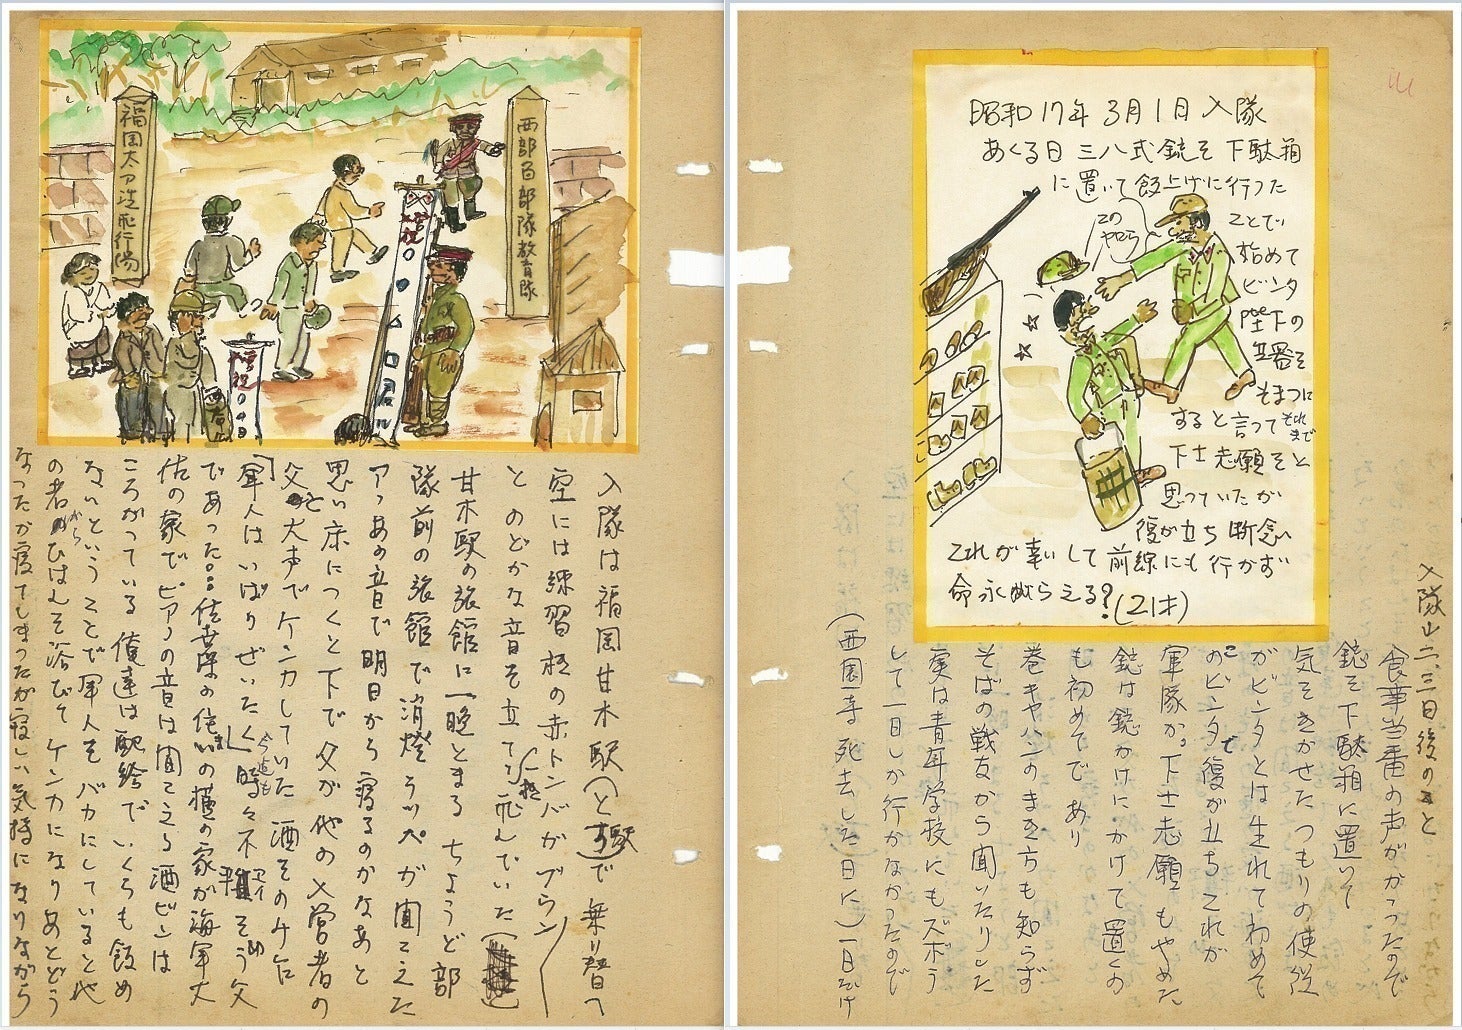 福岡大刀洗飛行場
西部百部隊教育隊
祝〇〇〇〇君
祝〇〇〇君
入隊は福岡甘木駅で乗り替へ
空には練習機の赤トンバがブウン
とのどかな音そ立てて飛んでいた
甘木駅の旅館に一晩とまる ちようど部
隊前の旅館で消燈ラッパが聞こえた
アゝあの音で明日から寝るのかなあと
思い床につくと下で父が他の入営者の
父と大声でケンカしていた 酒そのみ乍
「軍人はいばりぜいたく」時々不平そ言う父
であった
佐の家でピアノの音は聞こえる 酒ビンは
ころがっている 俺達は配給でいくらも飯め
ないということで軍人をバカにしていると他
の者からひはんそ浴びてケンカになりあとどう
なったか寝てしまったが寂しい気持になりながら
昭和17年3月1日入隊
あくる日 三八式銃そ下駄箱
に置いて飯上げに行つた
ことで
始めて
ビンタ
陛下の
兵器そ
そまつに
すると言って それまで
下士志願そと
思っていたが
復が立ち断念
これが幸いして前線にも行かず
命永がらえる?(21才)
このヤロー
入隊し二、三日後のこと
食事当番の声がかかったので
銃そ下駄箱に置いて
気そきかせたつもりの使役
がビンタとは生れてわめて
のビンタで復が立ちこれが
軍隊か。下士志願もやめた
銃は銃かけにかけて置くの
も初めてであり
巻キャハンのまき方も知らず
そばの戦友から聞いたりした
実は青年学校にもズボラ
して一日しか行かなかったので
(西園寺死去した日に)一日だけ